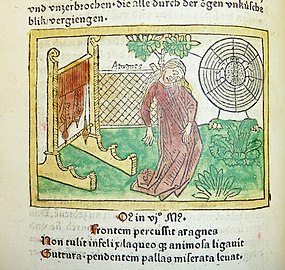 vnd vnzerbrochen · die alle durch der ögen vnküsche
blik / vergiengen.
Aragnes
in vjº
Frontem percussit aragnes
Non tulit infelix / laqueo qȝ animosa ligauit
Guttura · pendentem pallas miserata leuat.